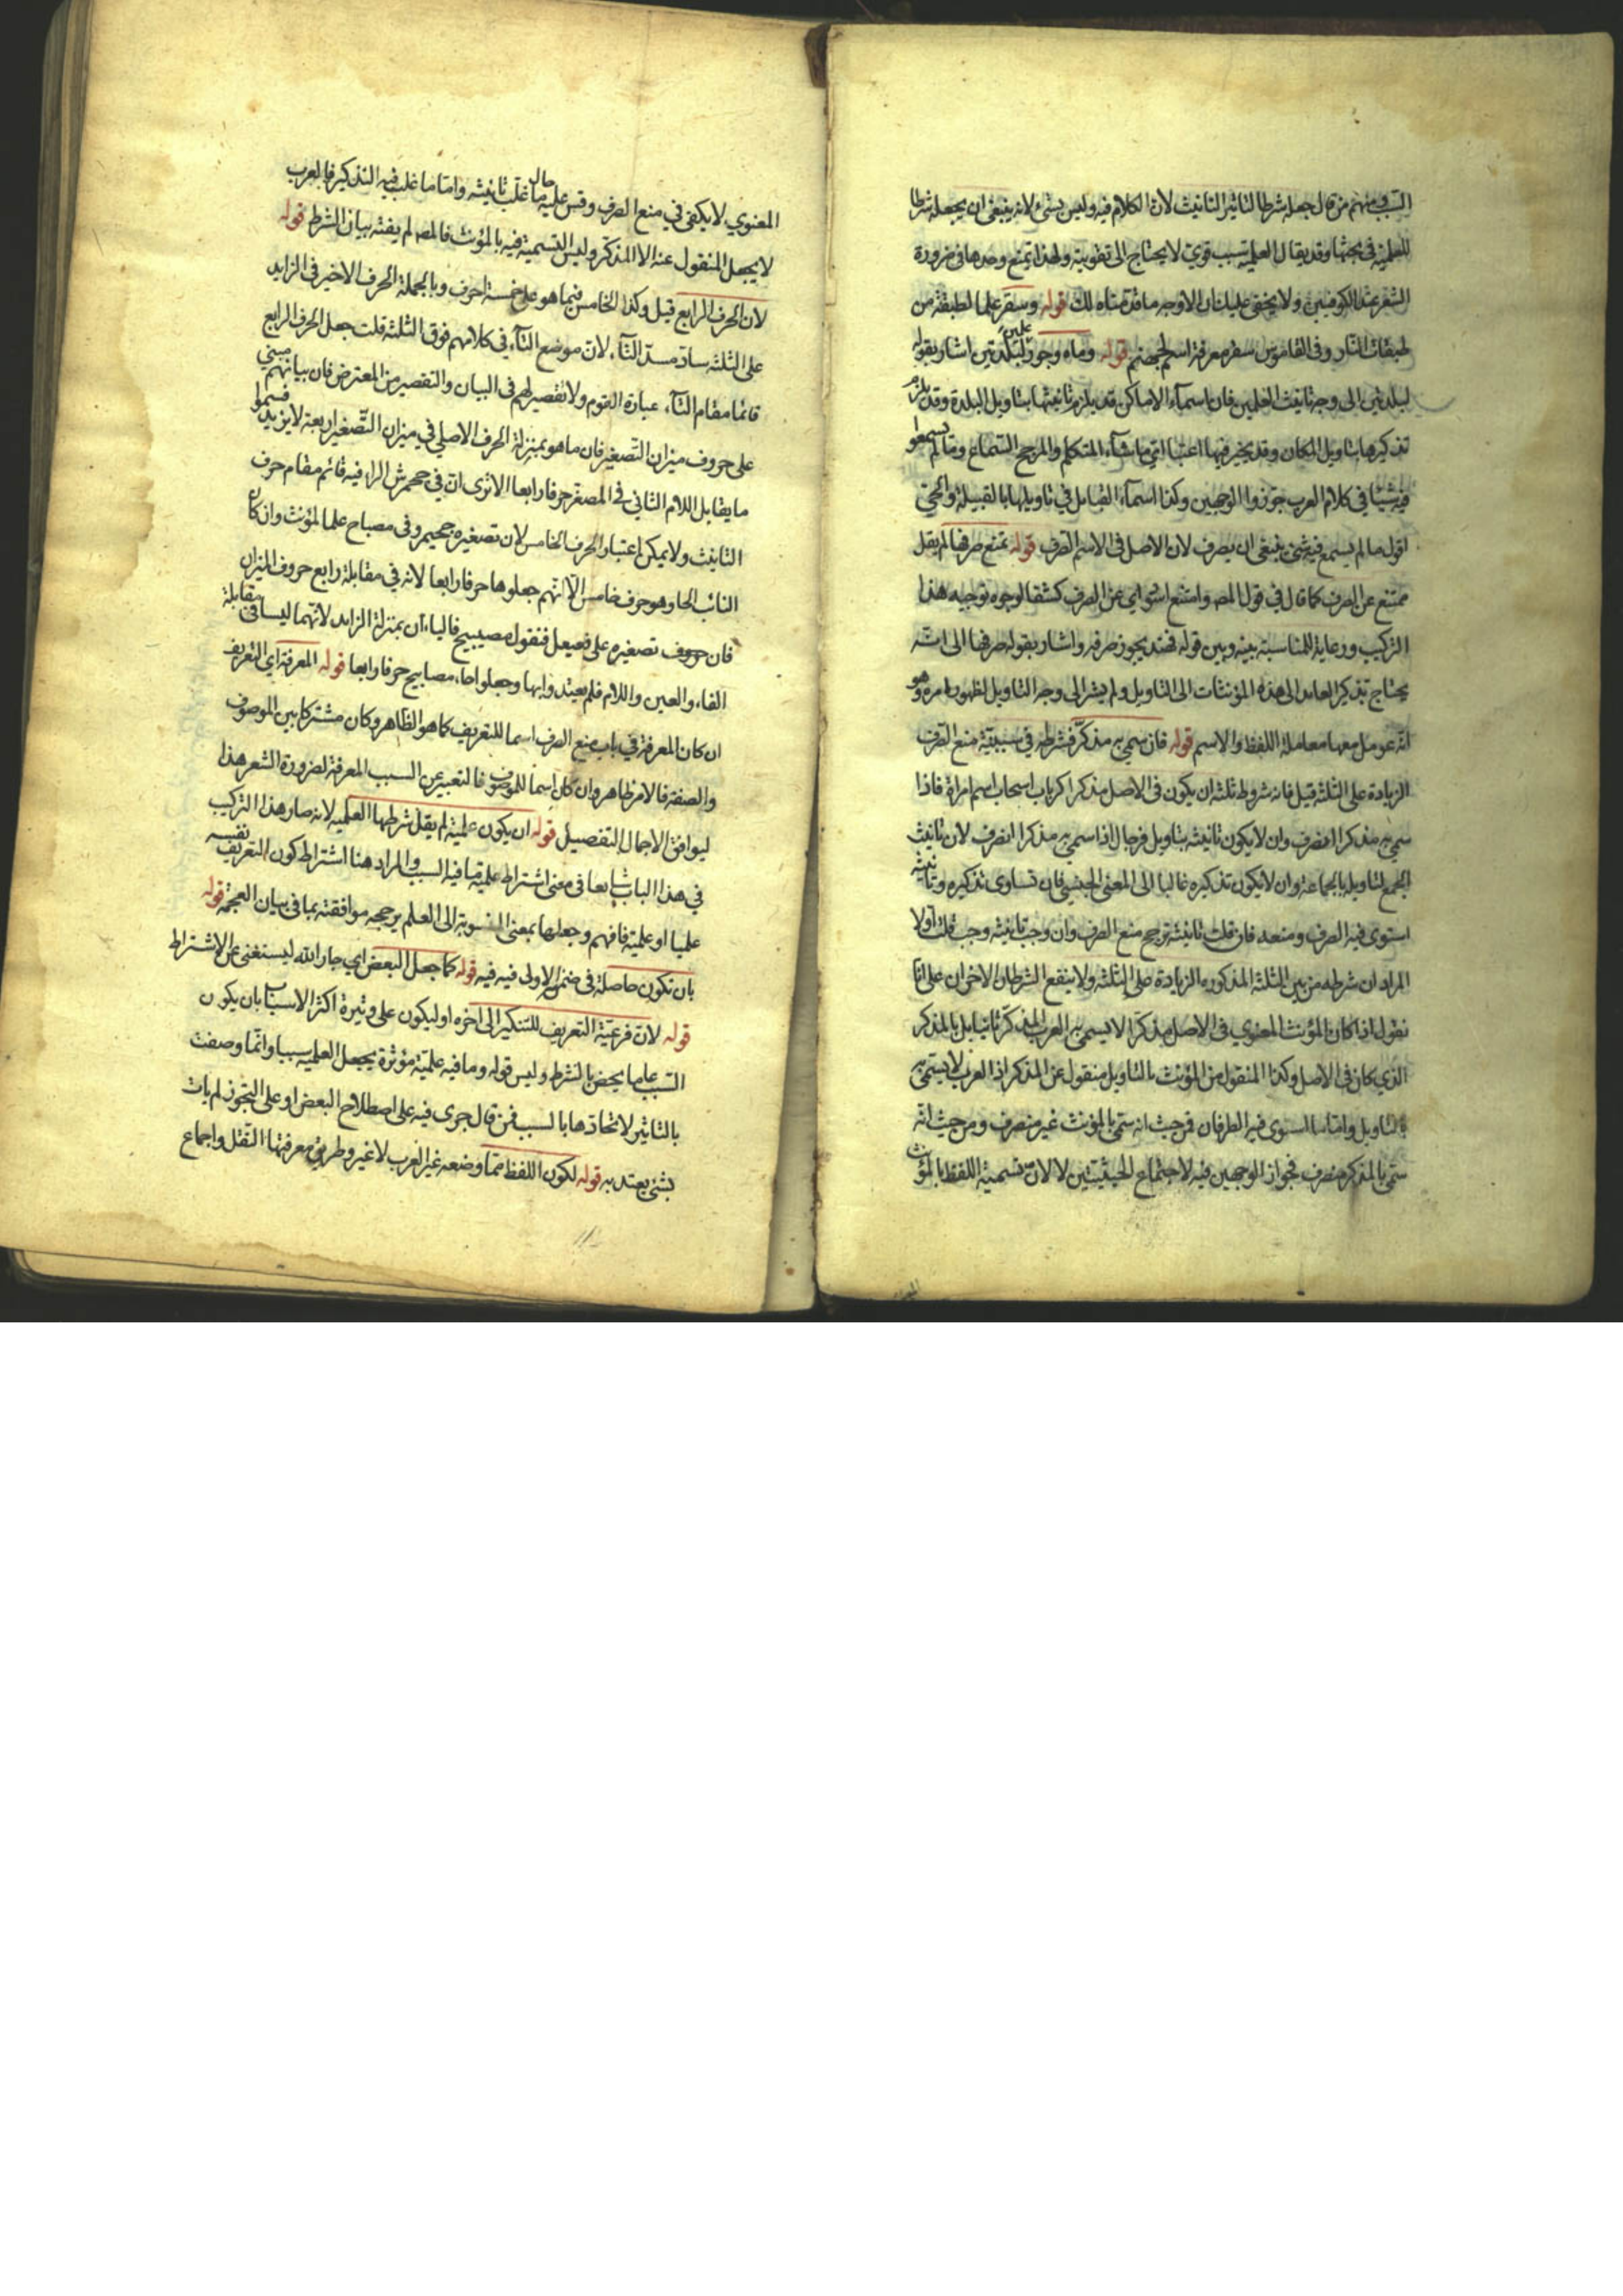 السبب فمنهم من قال جعله شرطا لتاثير التانيث لان الكلام فيه وليس بشئ لانه ينبغي ان يجعله شرطا
للعلمية في بحثها وقد يقال العلمية سبب قوي لا يحتاج الى تقوية ولهذا تمنع وحدها في ضرورة
الشعر عند الكوفيين ولا يخفى عليك ان الاوجه ما قدمناه لك قوله وسقر علما لطبقة من
طبقات النار وفي القاموس سقر معرفة اسم لجهنم قوله وماه وجور علمين لبلدتين اشار بقوله
لبلدتين الى وجه تانيث العلمين فان اسماء الاماكن قد يلزم تانيثها بتاويل البلدة وقد يلزم
تذكيرها بتاويل المكان وقد يخير فيها اعتبار اي ما شاء المتكلم والمرجح السماع وما لم يسمعوا
فيه شيئا في كلام العرب جوزوا الوجهين وكذا اسماء القبايل في تاويلها بالقبيلة والحي
اقول ما لم يسمع فيه شئ ينبغي ان يصرف لان الاصل في الاسم الصرف قوله تمنع صرفها لم يقل
ممتنع عن الصرف كما قال في قول المص وامتنع اي عن الصرف كشفا لوجوه توجيه هذا
التركيب ورعاية للمناسبة بينه وبين قوله فهند يجوز صرفه واشار بقوله صرفها الى انه
يحتاج تذكير العايد الى هذه المؤنثات الى التاويل ولم يشر الى وجه التاويل لظهور امره وهو
انه عومل معها معاملة اللفظ والاسم قوله فان سمي به مذكر فشرطه في سببية منع الصرف
الزيادة على الثلثة قيل فانه شروط ثلثة ان يكون في الاصل مذكرا كرباب اسحاب اسم امراة فاذا
سمي به مذكرا انصرف وان لا يكون تانيثه بتاويل فرجال اذا سمي به مذكرا انصرف لان تانيث
الجمع لتاويله بالجماعة وان لا يكون تذكيره غالبا الى المعنى الجنسي فان تساوى تذكيره وتانيثه
استوى فيه الصرف ومنعه فان قلت تانيثه ترجح منع الصرف وان وجب تانيثه وجب قلت اولا
المراد ان شرطه من بين الثلثة المذكورة الزيادة على الثلثة ولا ينفع الشرطان الاخران على انا
نقول اذا كان المؤنث المعنوي في الاصل مذكرا لا يسمي به العرب المذكر ثانيا بل بالمذكر
الذي كان في الاصل وكذا المنقول من المؤنث بالتاويل منقول عن المذكر اذ العرب لا يسمي به
بالتاويل واما ما استوى فيه الطرفان فمن حيث انه سمي بالمؤنث غير منصرف ومن حيث انه
سمي بالمذكر منصرف فجواز الوجهين فيه لاجتماع الحيثيتين لا لان تسمية اللفظ بالمؤنث
المعنوي لا يكفي في منع الصرف وقس عليه حال ما غلب تانيثه واما ما غلب فيه التذكير فالعرب
لا يجعل المنقول عنه الا المذكر وليس التسمية فيه بالمؤنث فالمص لم يفته بيان الشرط قوله
لان الحرف الرابع قيل وكذا الخامس فيما هو على خمسة احرف وبالجملة الحرف الاخير في الزايد
على الثلثة ساد مسد التاء لان موضع التاء في كلامهم فوق الثلثة قلت جعل الحرف الرابع
قائما مقام التاء عبارة القوم ولا تقصير لهم في البيان والتقصير من المعترض فان بيانهم مبني
على حروف ميزان التصغير فان ما هو بمنزلة الحرف الاصلي في ميزان التصغير اربعة لا يزيد فسموا
ما يقابل اللام الثاني في المصغر حرفا رابعا الا ترى ان في جحمرش الراء فيه قائم مقام حرف
التانيث ولا يمكن اعتبار الحرف الخامس لان تصغيره جحيمر وفي مصباح علما لمؤنث وان كان
النائب الحا وهو حرف خامس الا انهم جعلوها حرفا رابعا لانه في مقابلة رابع حروف الميزان
فان حروف تصغيره على فعيعل فنقول مصيبيح فالياءان بمنزلة الزايد لانهما ليسا في مقابلة
الفاء والعين واللام فلم يعتدوا بها وجعلوا حاء مصابيح حرفا رابعا قوله المعرفة اي التعريف
ان كان المعرفة في باب منع الصرف اسما للتعريف كما هو الظاهر وكان مشتركا بين الموصوف
والصفة فالامر ظاهر وان كان اسما للموصوف فالتعبير عن السبب المعرفة لضرورة الشعر هذا
ليوافق الاجمال التفصيل قوله ان يكون علمية لم يقل شرطها العلمية لانه صار هذا التركيب
في هذا الباب شايعا في معنى اشتراط علمية ما فيه السبب والمراد هنا اشتراط كون التعريف نفسه
علميا او علمية فافهم وجعلها بمعنى المنسوبة الى العلم يرجحه موافقته بما في بيان العجمة قوله
بان تكون حاصلة في ضمن الاولى فيه فيه قوله كما جعل البعض اي جار الله ليستغني عن الاشتراط
قوله لان فرعية التعريف للتنكير الى اخره او ليكون على وتيرة اكثر الاسباب بان يكون
السبب عاما يخص بالشرط وليس قوله وما فيه علمية مؤثرة يجعل العلمية سببا وانما وصفت
بالتاثير لاتحادها بالسبب فمن قال جرى فيه على اصطلاح البعض او على التجوز لم يات
بشئ يعتد به قوله لكون اللفظ مما وضعه غير العرب لا غير وطريق معرفتها النقل واجماع